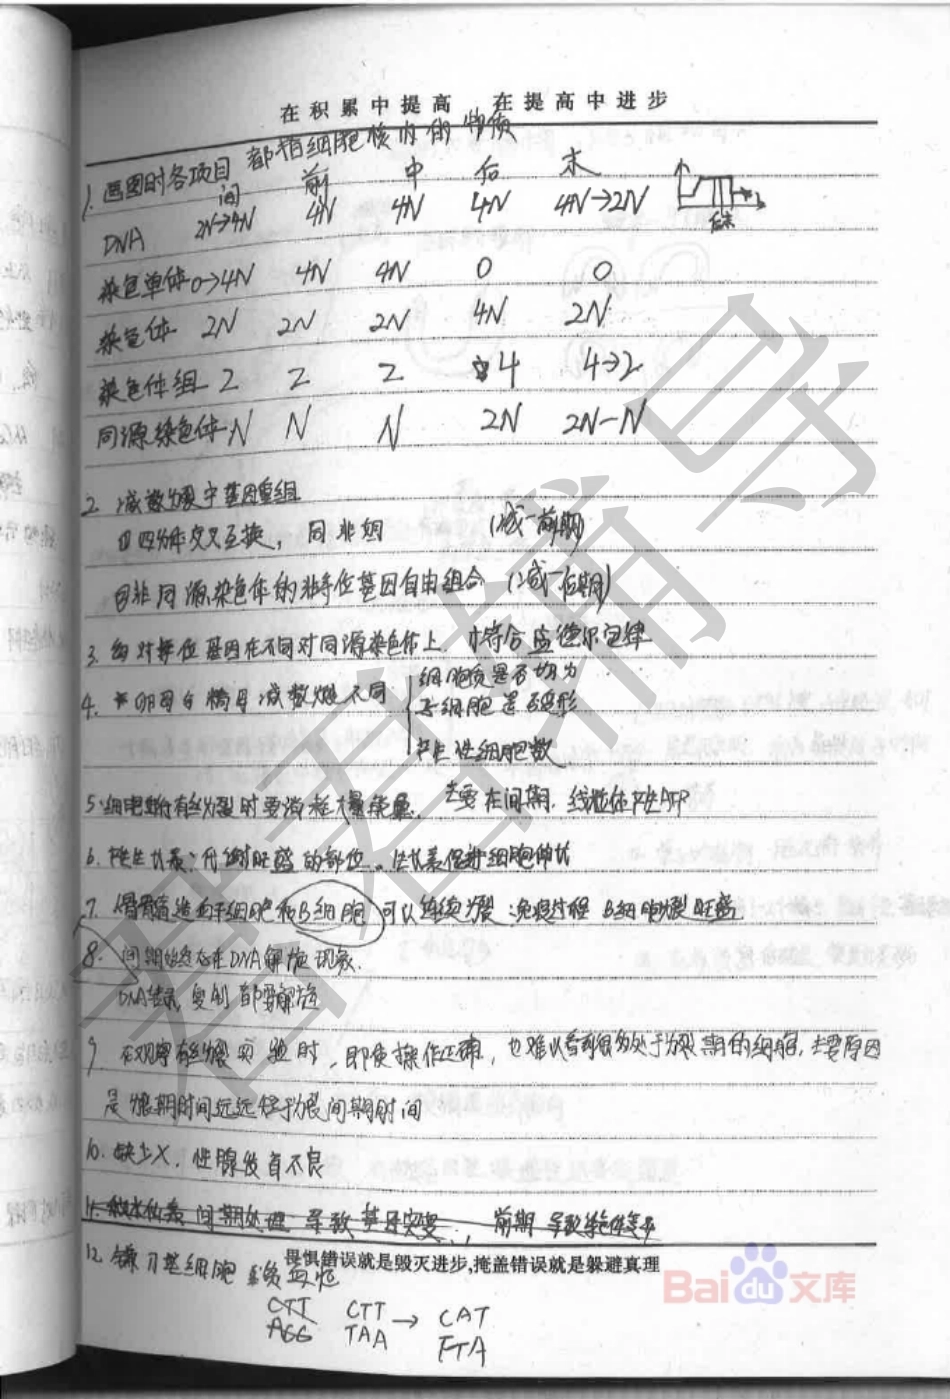 在积累中提高 在提高中进步
1. 画图时各项目 都指细胞核内的物质
间 前 中 后 末
DNA 2N→4N 4N 4N 4N 4N→2N
后末
染色单体 0→4N 4N 4N 0 0
染色体 2N 2N 2N 4N 2N
染色体组 2 2 2 4 4→2
同源染色体 N N N 2N 2N-N
2. 减数分裂中基因重组
①四分体交叉互换, 同非姐 (减一前期)
②非同源染色体的非等位基因自由组合 (减一后期)
3. 每对等位基因在不同对同源染色体上, 才符合孟德尔定律
4. 卵母与精母减数分裂不同
细胞质是否均分
子细胞是否变形
产生性细胞数
5. 细胞进行有丝分裂时要消耗大量能量, 主要在间期, 线粒体产生ATP
6. 产生长素:代谢旺盛的部位。生长素促进细胞伸长
7. 骨髓造血干细胞和B细胞可以连续分裂:免疫过程 B细胞分裂旺盛
8. 间期始终存在DNA解旋现象.
DNA转录, 复制都要解旋
9. 在观察有丝分裂实验时, 即使操作正确, 也难以看到很多处于分裂期的细胞, 主要原因
是分裂期时间远远短于分裂间期时间
10. 缺少X, 性腺发育不良
11. 秋水仙素 间期处理 导致基因突变, 前期 导致染色体变异
12. 镰刀型细胞贫血症
畏惧错误就是毁灭进步,掩盖错误就是躲避真理
CTT CTT → CAT
AGG TAA GTA
Bai du 文库
君君辅导